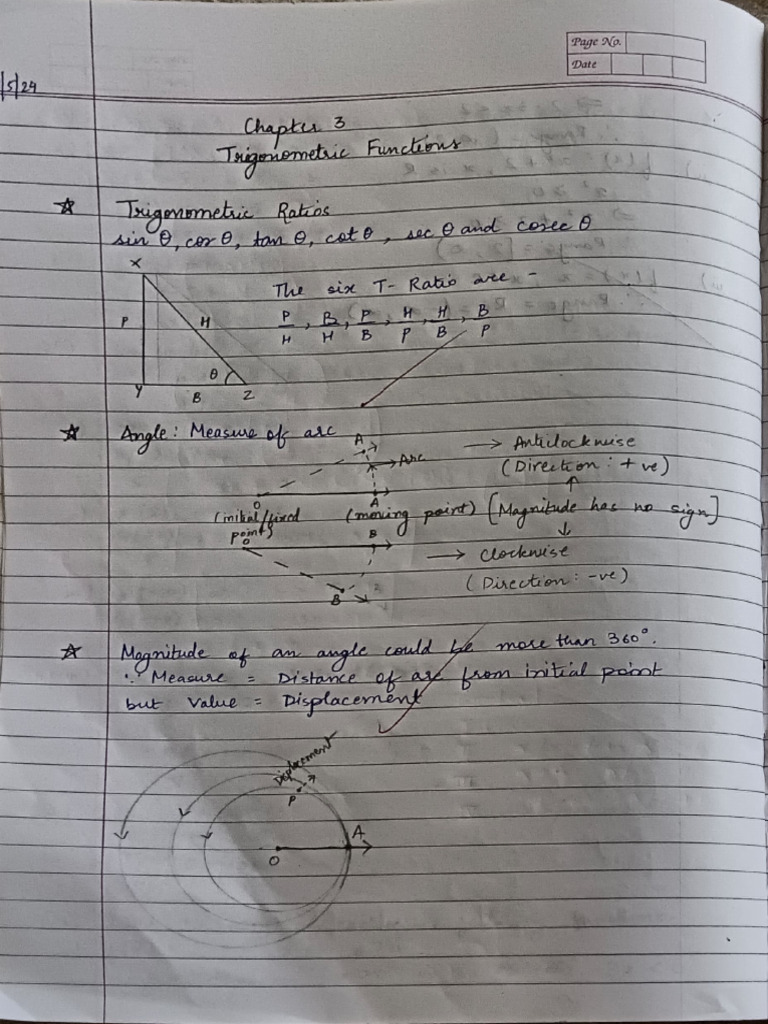 Page No.
Date
/5/24
Chapter 3
Trigonometric Functions
☆ Trigonometric Ratios
sin θ, cos θ, tan θ, cot θ, sec θ and cosec θ
X
The six T-Ratio are -
P/H, B/H, P/B, H/P, H/B, B/P
P H
θ
Y B Z
☆ Angle: Measure of arc
A
→ Arc
→ Anticlockwise
(Direction: +ve)
O A
(initial/fixed point) (moving point) [Magnitude has no sign]
O B
→ Clockwise
(Direction: -ve)
B
☆ Magnitude of an angle could be more than 360°.
∵ Measure = Distance of arc from initial point
but Value = Displacement
Displacement
P
A
O